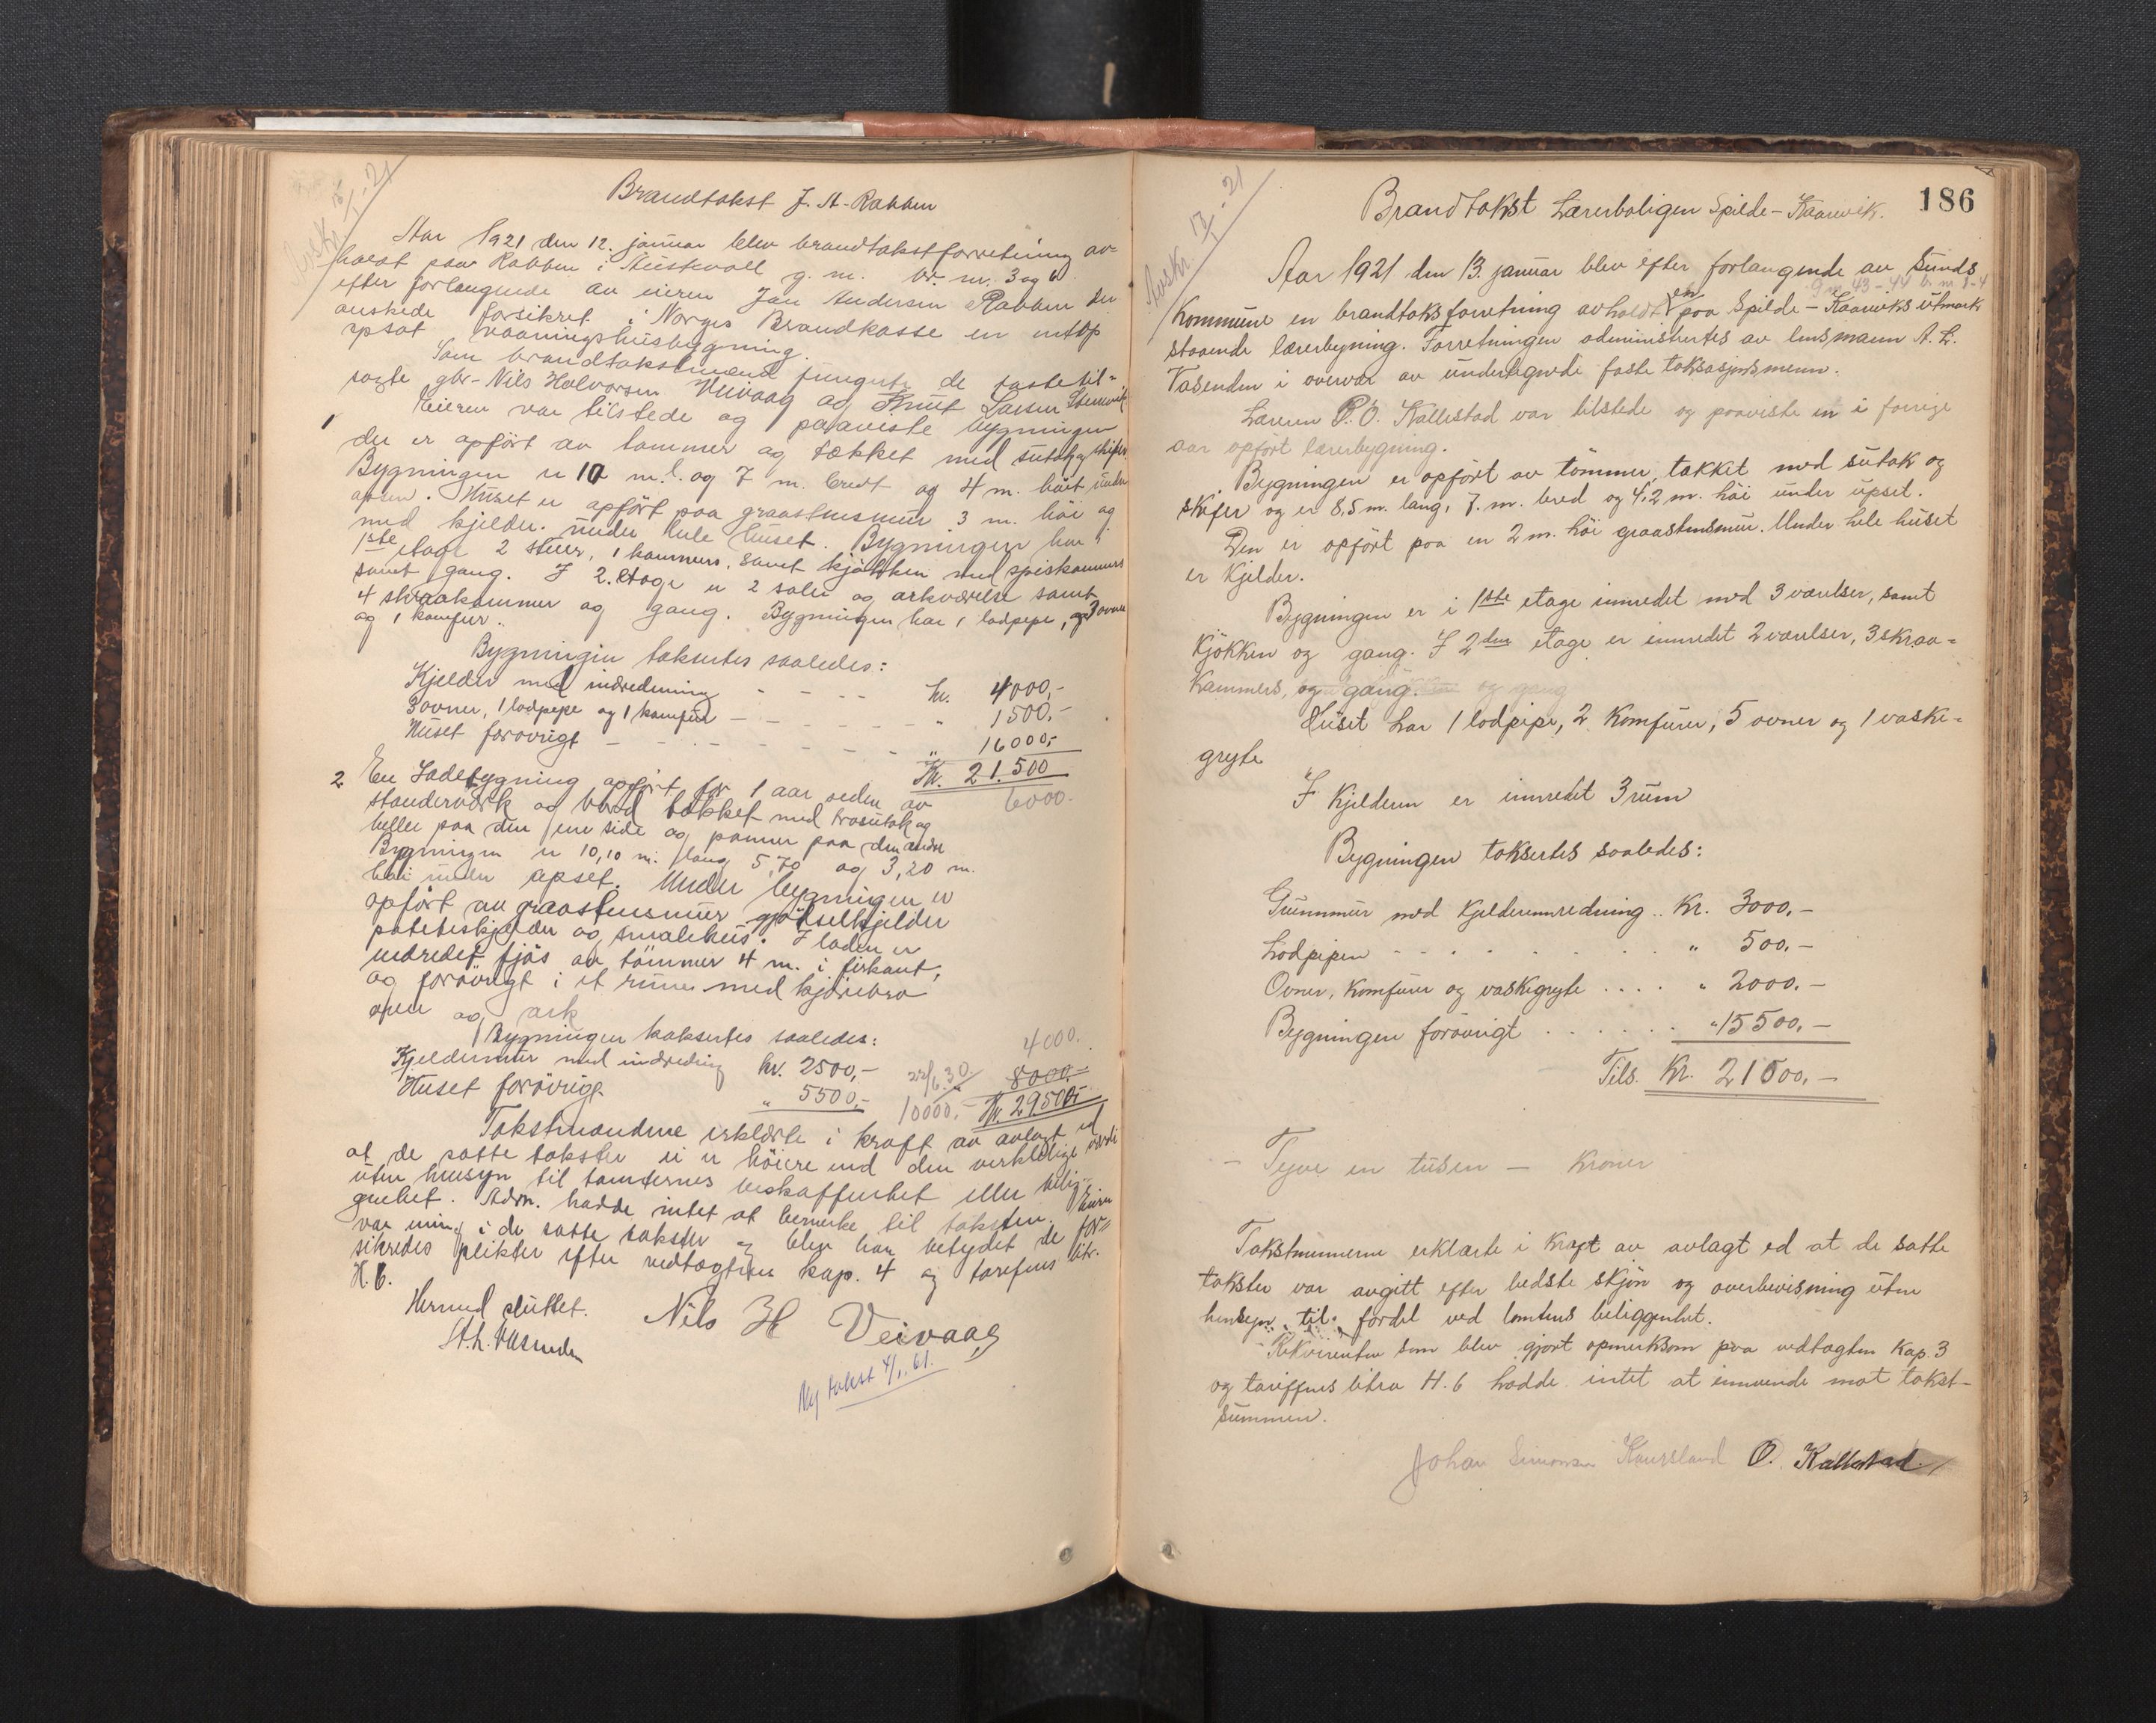 Brandtakst J. A. Rabben
Avskr. 13/1.21
Aar 1921 den 12. januar blev brandtakstforretning av-
holdt paa Rabben i Austevoll g. m. br. m. 3 og 6
efter forlangende av eieren Jan Andersen Rabben der
ønskede forsikret i Norges Brandkasse en nylig
opsat vaaningshusbygning.
Som brandtakstmænd fungerte de fastetil-
sagte gbr. Nils Halvorsen Veivaag og Knut Larsen Stenevik
1 Eieren var tilstede og paaviste bygningen
der er opført av tømmer og tækket med sutak og skifer
Bygningen er 10 m. l. og 7 m. bredt og 4 m. höit under
opsen. Huset er opført paa graastensmur 3 m. höi og
med kjelder under hele huset. Bygningen har i
1ste etage 2 stuer, 1 kammers, samt kjøkken med spiskammers
samt gang. I 2. etage er 2 saler og arkværelse samt
4 skraakammer og gang. Bygningen har 1 lodpipe, og 3 ovner
og 1 komfur.
Bygningen taksertes saaledes:
Kjelder med indredning - - - - kr. 4000,-
3 ovner, 1 lodpipe og 1 komfur - - - - " 1500,-
Huset forøvrigt - - - - - - - " 16000,-
Kr. 21.500
6000.
2 En Ladebygning opført for 1 aar siden av
standerværk og bord tækket med trosutak og
heller paa den ene side og panner paa den andre
Bygningen er 10,10 m. lang 5,70 og 3,20 m.
höi under opset. Under bygningen er
opført av graastensmur gjødselkjelder
poteteskjelder og smalehus. I laden er
indredet fjös av tömmer 4 m. i firkant,
og forövrigt i et rum med kjörebro
open og ark
Bygningen taksertes saaledes:
4000.
Kjeldermur med indreding kr. 2500,- 22/6.30. 8000.-
Huset forövrigt " 5500,- 10000.- Kr. 29500,-
Takstmændene erklærte i kraft av avlagt ed
at de satte takster ei er höiere end den verkelige værdi
uten hensyn til tomternes beskaffenhet eller belig-
genhet. Adm. hadde intet at bemerke til taksten. Eieren
var enig i de satte takster og blev han betydet de for-
sikredes plikter efter vedtægtens kap. 4 og tarefens litr.
H. 6.
Hermed sluttet.
A. L. Vasenden
Nils H Veivaag
Ny takst 4/1.61.
186
Brandtakst Lærerboligen Spilde-Kaarevik.
Avskr. 17/1.21
Aar 1921 den 13. januar blev efter forlangende av Sunds
g. m. 43-44 b. m. 1-4
kommune en brandtaksforretning avholdt en paa Spilde-Kaareviks utmark
staaende lærerbygning. Forretningen administrertes av lensmann A. L.
Vasenden i overvær av undertegnede faste taksasjonsmenn.
Læreren P. O. Kallestad var tilstede og paaviste en i forrige
aar opført lærerbygning.
Bygningen er opført av tømmer, tækket med sutak og
skifer og er 8,5 m. lang, 7. m. bred og 4,2 m. höi under upset.
Den er opført paa en 2 m. höi graastensmur. Under hele huset
er Kjelder.
Bygningen er i 1ste etage innredet med 3 værelser, samt
Kjøkken og gang. I 2den etage er innredet 2 værelser, 3 skraa-
kammers, og gang. og gang
Huset har 1 lodpipe, 2 Komfurer, 5 ovner og 1 vaske-
gryte
I Kjelderen er innredet 3 rum
Bygningen taksertes saaledes:
Grunnmur med Kjelderinnredning .. Kr. 3000.-
Lodpipen - - - - " 500.-
Ovner, Komfurer og vaskegryte .... " 2000.-
Bygningen forøvrigt ...... " 15500.-
Tils. Kr. 21500.-
- Tyve en tusen - kroner
Takstmennerne erklærte i kraft av avlagt ed at de satte
takster var avgitt efter bedste skjön og overbevisning uten
hensyn til fordel ved tomtens beliggenhet.
Rekvirenten som blev gjort opmerksom paa vedtægten Kap. 3
og tariffens litra H. 6 hadde intet at innvende mot takst-
summen.
Johan Simonsen Kaussland O. Kallestad.